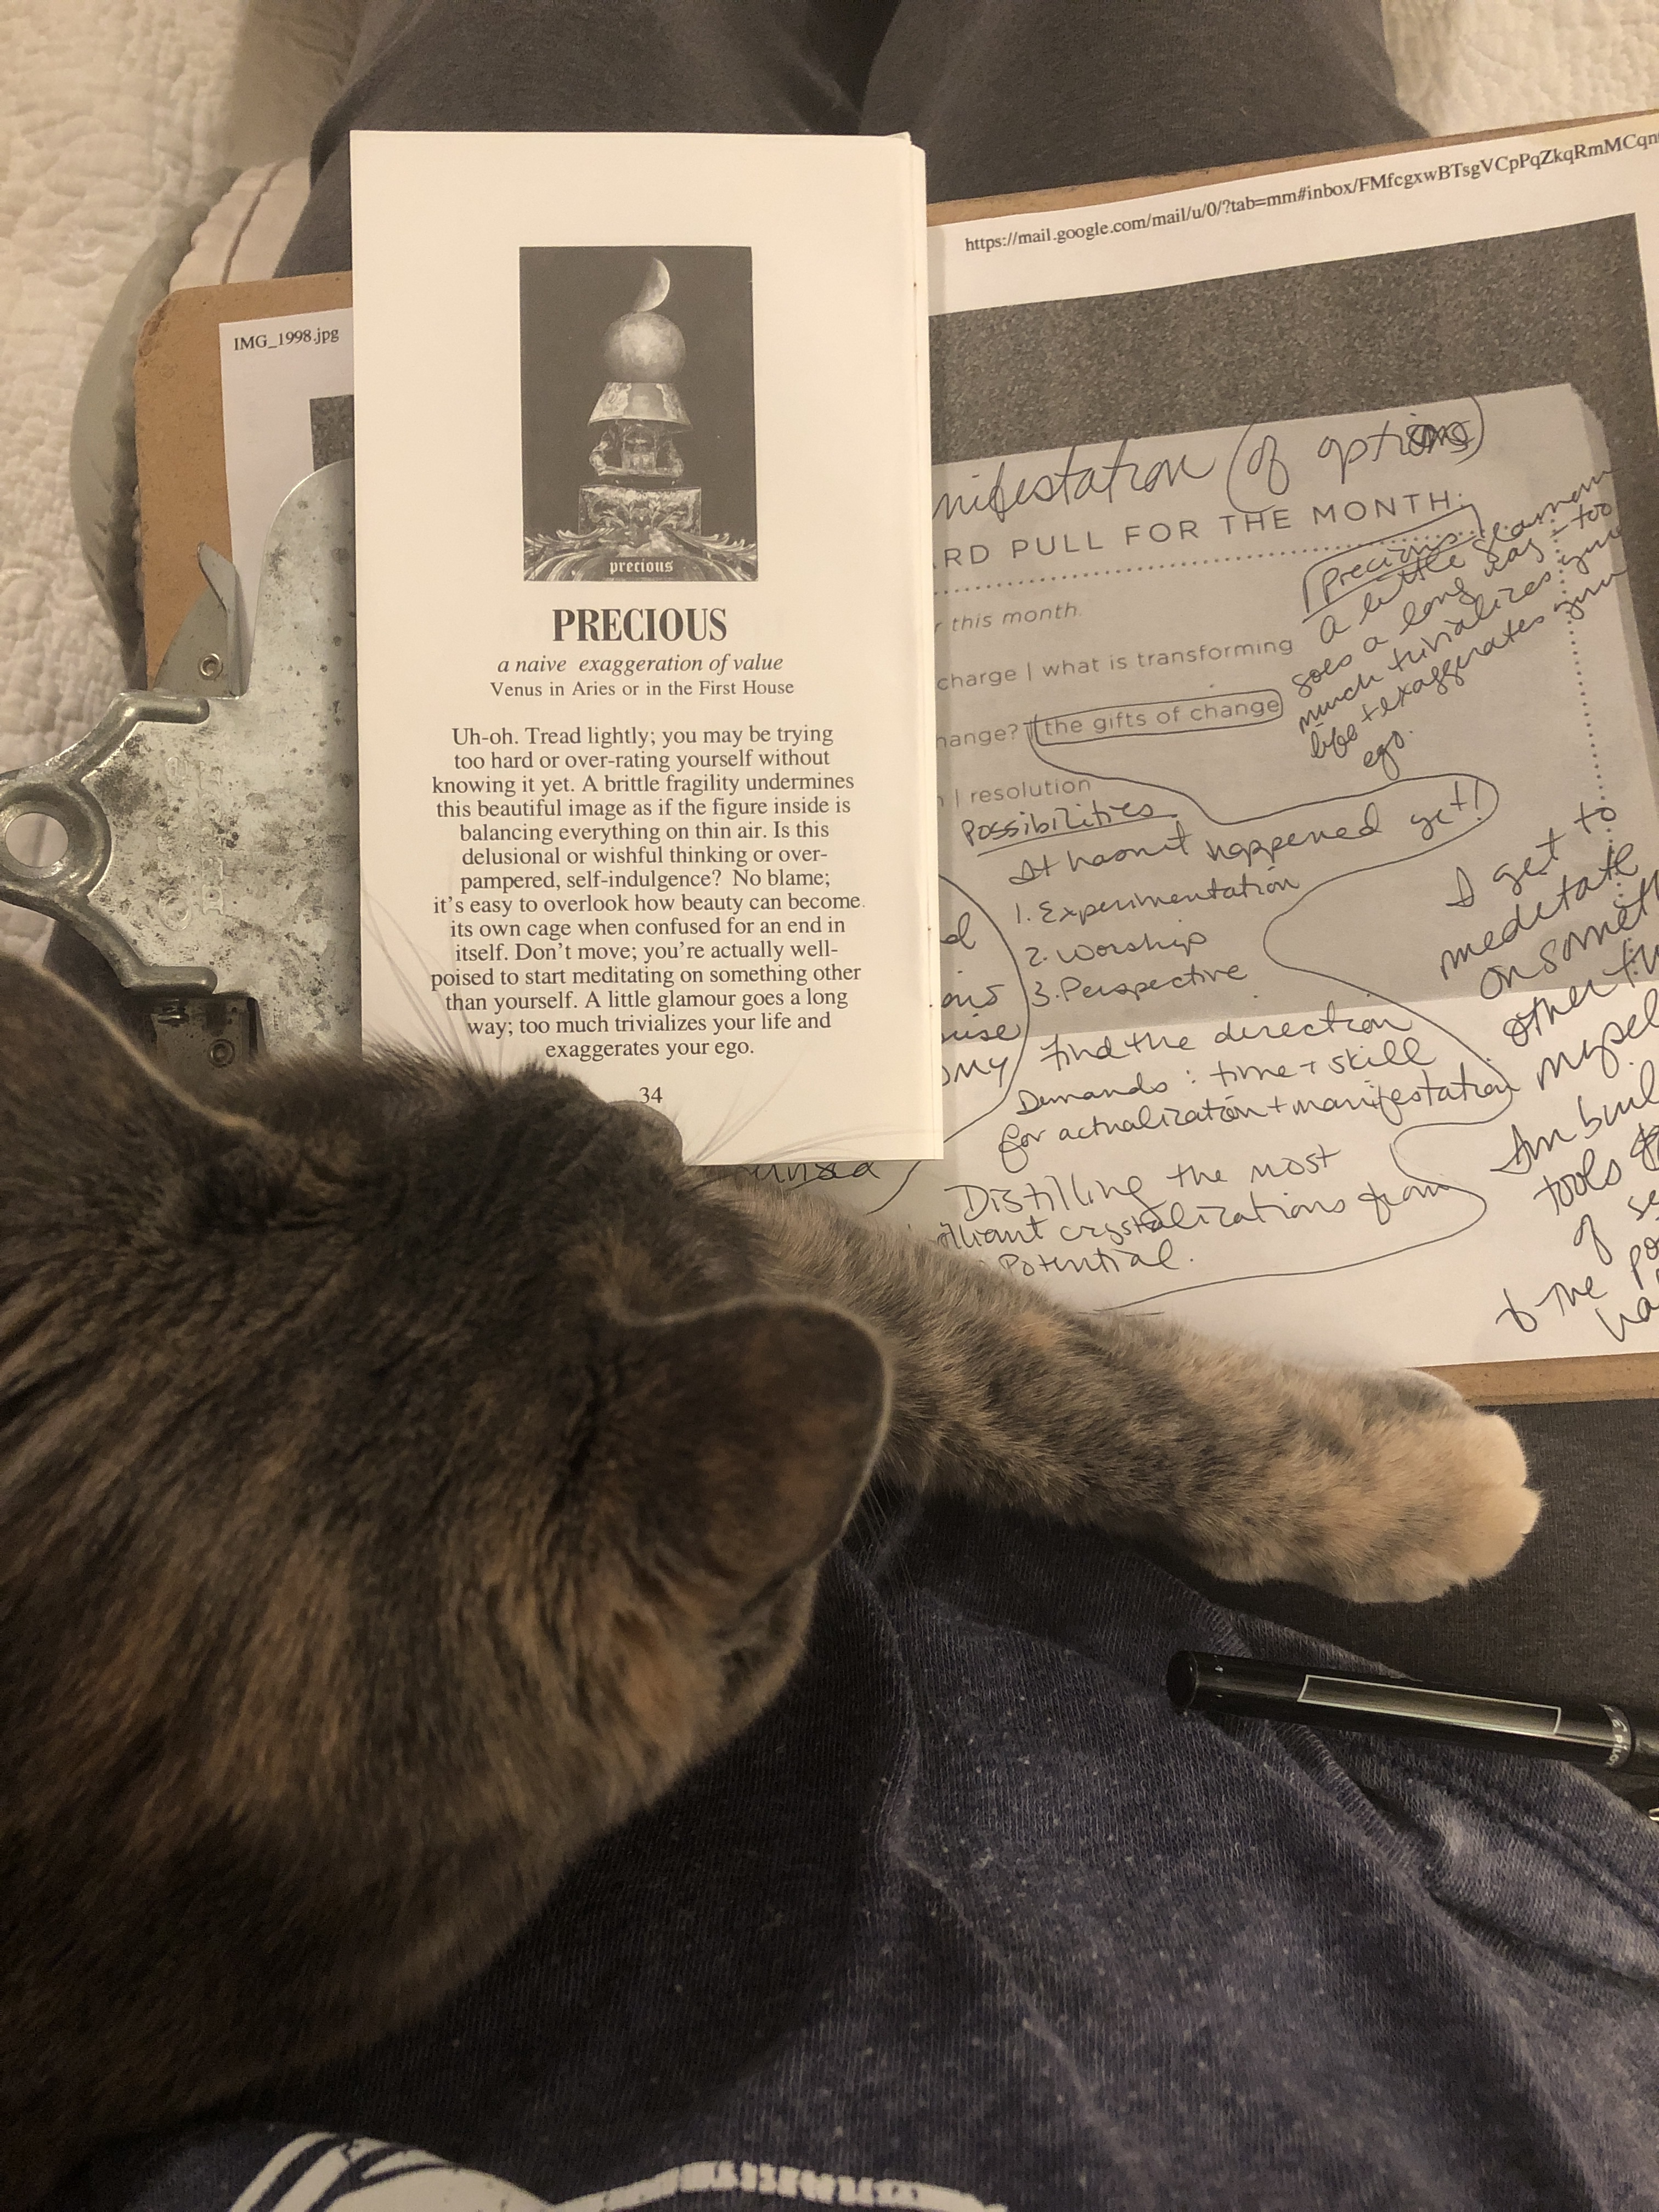 IMG_1998.jpg
https://mail.google.com/mail/u/0/?tab=mm#inbox/FMfcgxwBTsgVCpPqZkqRmMCqn
precious
PRECIOUS
a naive exaggeration of value
Venus in Aries or in the First House
Uh-oh. Tread lightly; you may be trying
too hard or over-rating yourself without
knowing it yet. A brittle fragility undermines
this beautiful image as if the figure inside is
balancing everything on thin air. Is this
delusional or wishful thinking or over-
pampered, self-indulgence? No blame;
it's easy to overlook how beauty can become
its own cage when confused for an end in
itself. Don't move; you're actually well-
poised to start meditating on something other
than yourself. A little glamour goes a long
way; too much trivializes your life and
exaggerates your ego.
34
nifestation (of options)
RD PULL FOR THE MONTH:
this month.
charge | what is transforming
hange? | the gifts of change
| resolution
Precious
a little glamour
goes a long way - too
much trivializes your
life + exaggerates your
ego.
Possibilities
It hasn't happened yet!
1. Experimentation
2. Worship
3. Perspective
find the direction
Demands: time + skill
for actualization + manifestation
Distilling the most
lliant crystalizations from
Potential.
I get to
meditate
on someth
other th
mysel
I'm buil
tools
of se
to the po
ha